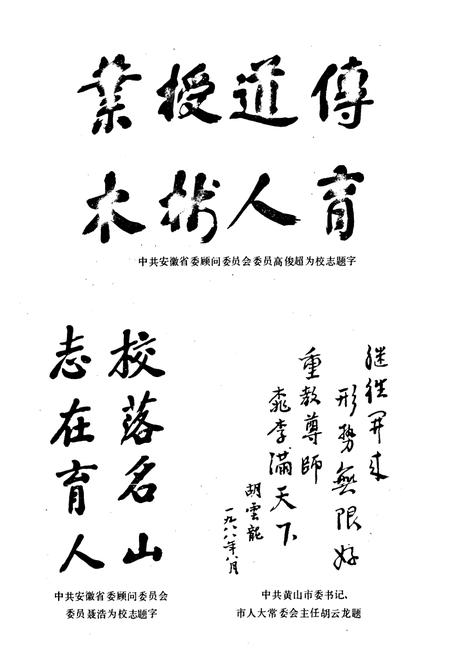 傳道授業
育人树木
中共安徽省委顾问委员会委员高俊超为校志题字
校落名山
志在育人
中共安徽省委顾问委员会
委员聂浩为校志题字
继往開来
形勢無限好
重教尊師
桃李滿天下
胡雲龍
一九八八年八月
中共黄山市委书记、
市人大常委会主任胡云龙题